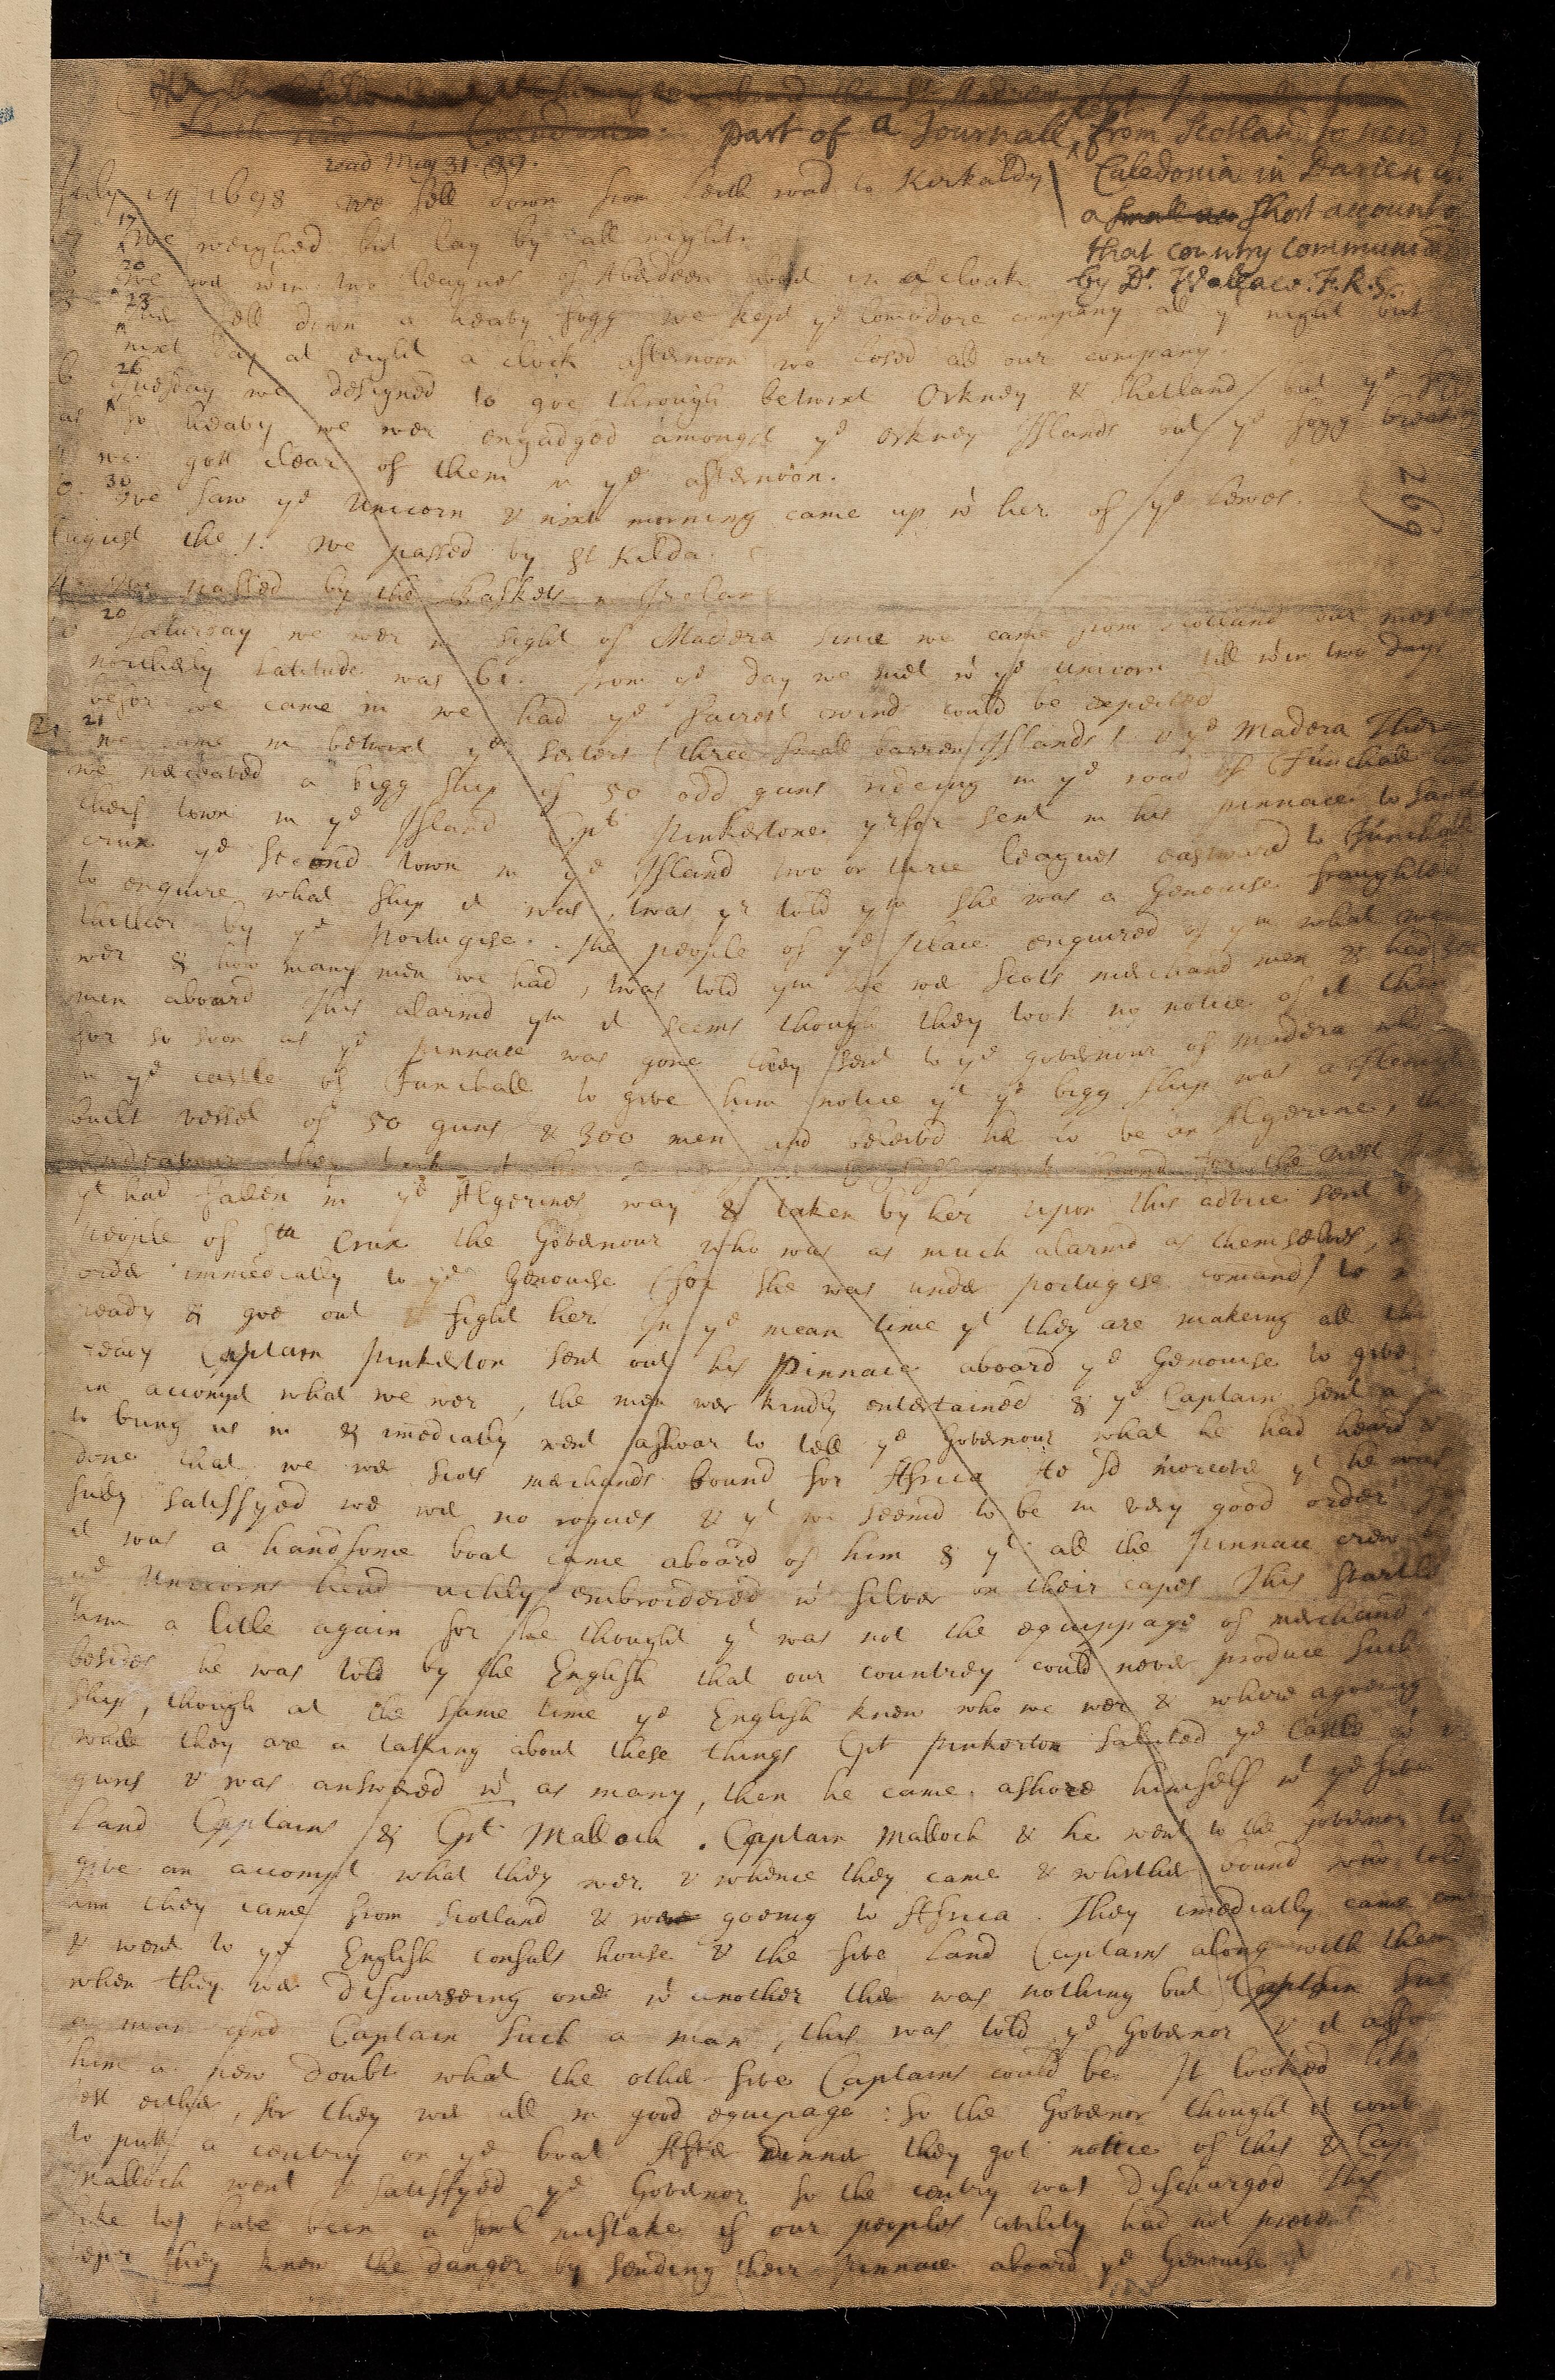 part of a Journall kept from Scotland to new
Caledonia in Darien
a short account of
that country communi
by Dr. Wallace. F.R.S.
read May 31. 99.
269
July 14 1698 we fell down from Leith road to Kirkaldy
17 we weighed but lay by all night.
20 we wer win two leagues of Aberdeen
23 fell down a heavy fogg we keept ye Comodore company all ye night but
next day at eight a clock afternoon we losed all our company.
26 Tuesday we designed to goe through betwixt Orkney & Shetland but ye fogg
so heavy we wer engadged amongst ye Orkney Islands but ye fogg breaking
we gott clear of them in ye afternoon.
30 we saw ye Unicorn & nixt morning came up wt her of ye Lewes.
August the 1. we passed by St Kilda.
4. we passed by the Baskets in Ireland
20 Saturday we wer in sight of Madera since we came from Scotland our most
northerly Latitude was 61. from ye day we met wt ye Unicorn till win two days
befor we came in we had ye fairest wind could be expected
21 we came in betwixt ye Serters (three small barren Islands) & ye Madera There
we receaved a bigg ship of 50 odd guns rideing in ye road of Funchall
cheif town in ye Island Cpt Pinkertone yrfor sent in his pinnace to Santa
crux ye second town in ye Island two or three leagues eastward to Funchall
to enquire what ship it was, twas yr told ym she was a Genouise fraughted
thither by ye Portugise. The people of ye place enquired of ym what we
wer & how many men we had, twas told ym we wer Scots merchand men & hed 300
men aboard This alarmd ym it seems though they took no notice of it then
for so soon as ye pinnace was gone they sent to ye governour of Madera who
in ye castle of Funchall to give him notice yt ye bigg ship was a
built vessel of 50 guns & 300 men and beleevd her to be an Algerine,
yt had fallen in ye Algerines way & taken by her upon this advice sent by
people of Sta Crux the Governour who was as much alarmd as themselves,
order immediatly to ye Genouise (for she was under portugise comand) to
ready & goe out & fight her In ye mean time yt they are makeing all
ready Captain Pinkerton sent out his Pinnace aboard ye Genouise to give
an accompt what we wer, the men wer kindly entertained & ye Captain sent a
to bring us in & imediatly went ashoar to tell ye Governour what he had heard &
done that we wer Scots merchands bound for Africa He sd moreover yt he was
fully satisfyed we wer no rogues & yt we seemd to be in very good order for
it was a handsome boat came aboard of him & yt all the pinnace crew
ye Unicorns head richly embroidered wt silver on their capes This startled
him a litle again for he thought yt was not the equippage of merchand
besides he was told by the English that our countrey could never produce such
ship, though at the same time ye English knew who we wer & where agoeing
while they are a talking about these things Cpt Pinkerton saluted ye Castle wt
guns & was answered wt as many, then he came ashore himself wt ye five
Land Captains & Cpt Malloch. Captain Malloch & he went to the governor to
give an accompt what they wer & whence they came & whither bound who told
him they came from Scotland & were goeing to Africa. They imediatly came
& went to ye English consuls house & the five Land Captains along with them
when they wer discourseing one wt another ther was nothing but Captain such
a man and Captain such a man, this was told ye Governor & it
him a new doubt what the other five Captains could be. It looked like
either, for they wer all in good equipage: so the Governor thought it
to putt a centry on ye boat After dinner they got notice of this & Cap
Malloch went & satisfyed ye Governor so the centry was dischargod This
like to have been a foul mistake if our peoples civility had not prevent
they knew the danger by sending their pinnace aboard ye Genouise